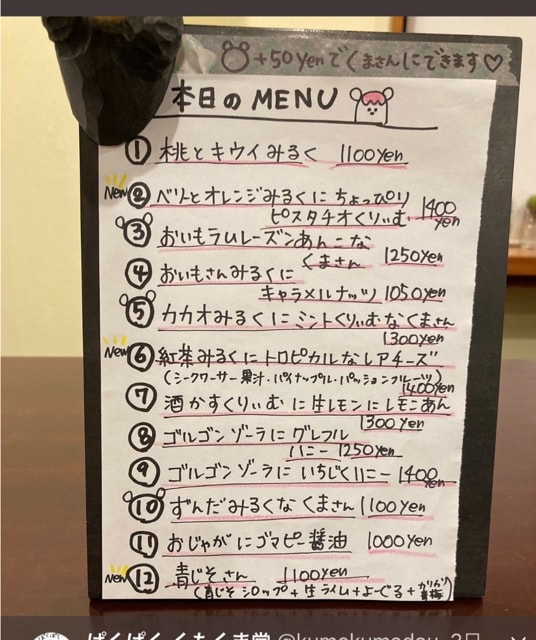 +50yenでくまさんにできます♡
本日のMENU
① 桃とキウイみるく 1100yen
New ② ベリーとオレンジみるくに ちょっぴり
ピスタチオくりぃむ 1400yen
③ おいもラムレーズンあんこな
くまさん 1250yen
④ おいもさんみるくに
キャラメルナッツ 1050yen
⑤ カカオみるくにミントくりぃむなくまさん
1300yen
New ⑥ 紅茶みるくにトロピカルなレアチーズ
(シークワーサー果汁・パイナップル・パッションフルーツ)
1400yen
⑦ 酒かすくりぃむに生レモンにレモニあん
1300yen
⑧ ゴルゴンゾーラにグレフル
ハニー 1250yen
⑨ ゴルゴンゾーラにいちじくハニー 1400yen
⑩ ずんだみるくなくまさん 1100yen
⑪ おじゃがにゴマピー醤油 1000yen
New ⑫ 青じそさん 1100yen
(青じそシロップ+生ライム+よーぐる+カリカリ青梅)